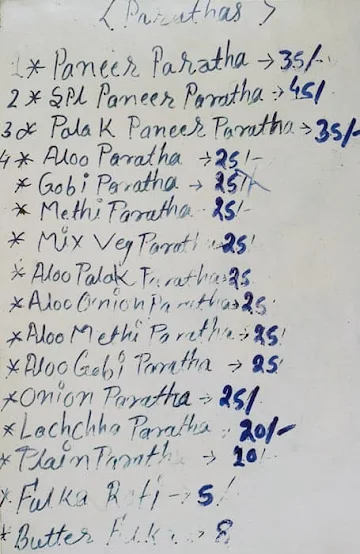 < Parathas >
1* Paneer Paratha → 35/-
2 * SPL Paneer Paratha → 45/
3 * Palak Paneer Paratha → 35/-
4 * Aloo Paratha → 25/-
* Gobi Paratha → 25/
* Methi Paratha 25/-
* Mix Veg Parath 25/
* Aloo Palak Paratha → 25
* Aloo Onion Paratha → 25
* Aloo Methi Paratha → 25/
* Aloo Gobi Paratha → 25
* Onion Paratha → 25/-
* Lachchha Paratha → 20/-
* Plain Parath → 10
* Fulka Roti → 5/
* Butter Fulka → 8